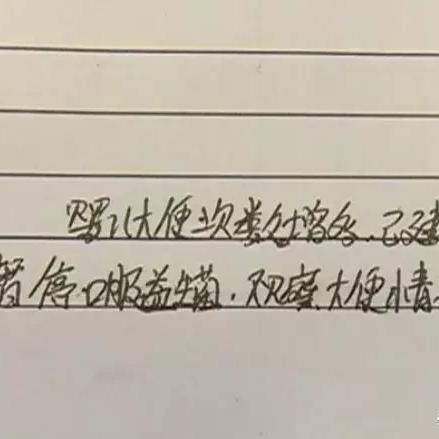 大便次数增多，已建
暂停口服益生菌，观察大便情